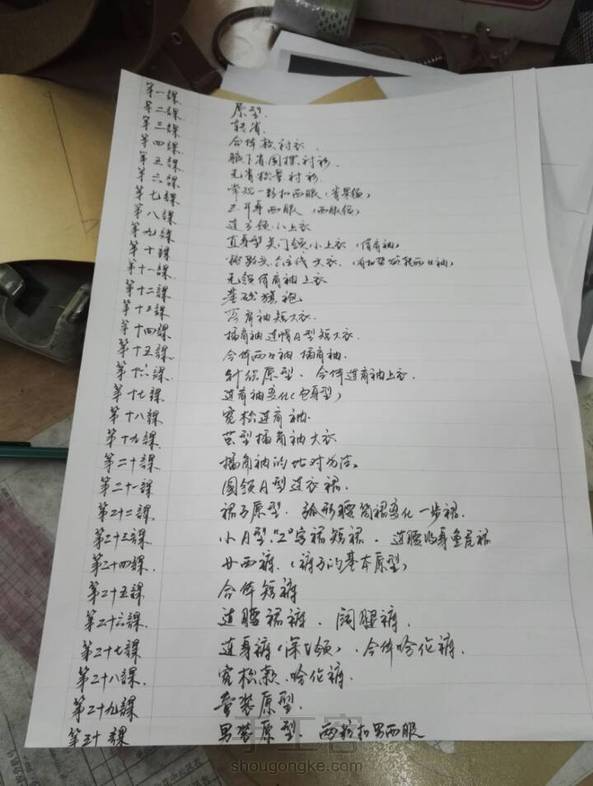 第一課 原型.
第二課 转省.
第三課 合体款衬衣
第四課 腋下省圆摆衬衫.
第五課 无省松量衬衫.
第六課 常规一粒扣西服(青果领)
第七課 三开身西服 (西服领)
第八課 连立领小上衣
第九課 直身型关门领小上衣 (借肩袖)
第十課 大衣.
第十一課 无领借肩袖上衣
第十二課 基础旗袍
第十三課 落肩袖短大衣.
第十四課 插肩袖连帽A型短大衣.
第十五課 合体两片袖 插肩袖.
第十六課 针织原型. 合体连肩袖上衣.
第十七課 连肩袖变化(包身型)
第十八課 宽松连肩袖.
第十九課 茧型插肩袖大衣
第二十課 插角袖的比对方法。
第二十一課 圆领A型连衣裙.
第二十二課 裙子原型. 弧形腰筒裙变化一步裙.
第二十三課 小A型."Z"字褶短裙. 连腰收身鱼尾裙
第二十四課 女西裤. (裤子的基本原型)
第二十五課 合体短裤
第二十六課 连腰裙裤. 阔腿裤.
第二十七課 连身裤(深V领). 合体哈伦裤.
第二十八課 宽松款.哈伦裤.
第二十九課 童装原型.
第三十課 男装原型. 两粒扣男西服
手工客
shougongke.com